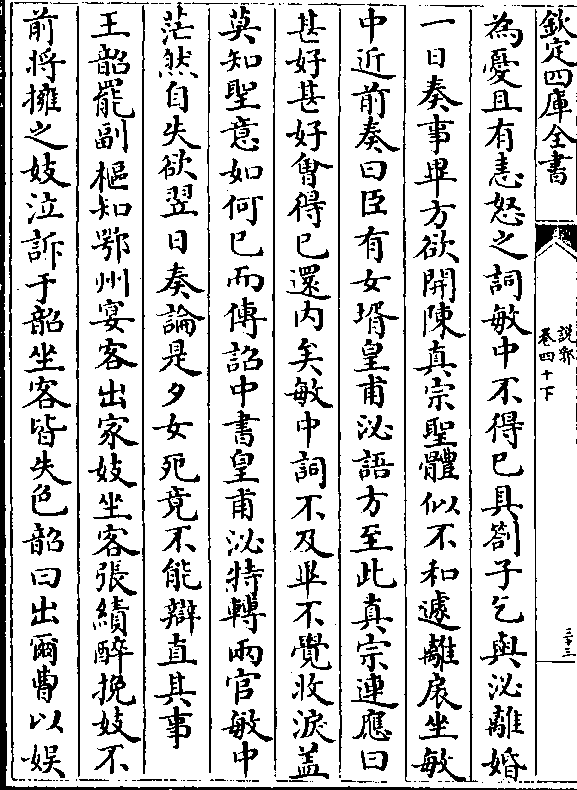 欽定四庫全書
說郛
卷四十下
三十三
為憂且有恚怒之詞敏中不得已具劄子乞與泌離婚
一日奏事畢方欲開陳真宗聖體似不和遽離扆坐敏
中近前奏曰臣有女壻皇甫泌語方至此真宗連應曰
甚好甚好會得已還內矣敏中詞不及畢不覺收淚盖
莫知聖意如何已而傳詔中書皇甫泌特轉兩官敏中
茫然自失欲翌日奏論是夕女死竟不能辯直其事
王韶罷副樞知鄂州宴客出家妓坐客張績醉挽妓不
前將擁之妓泣訴于韶坐客皆失色韶曰出爾曹以娛